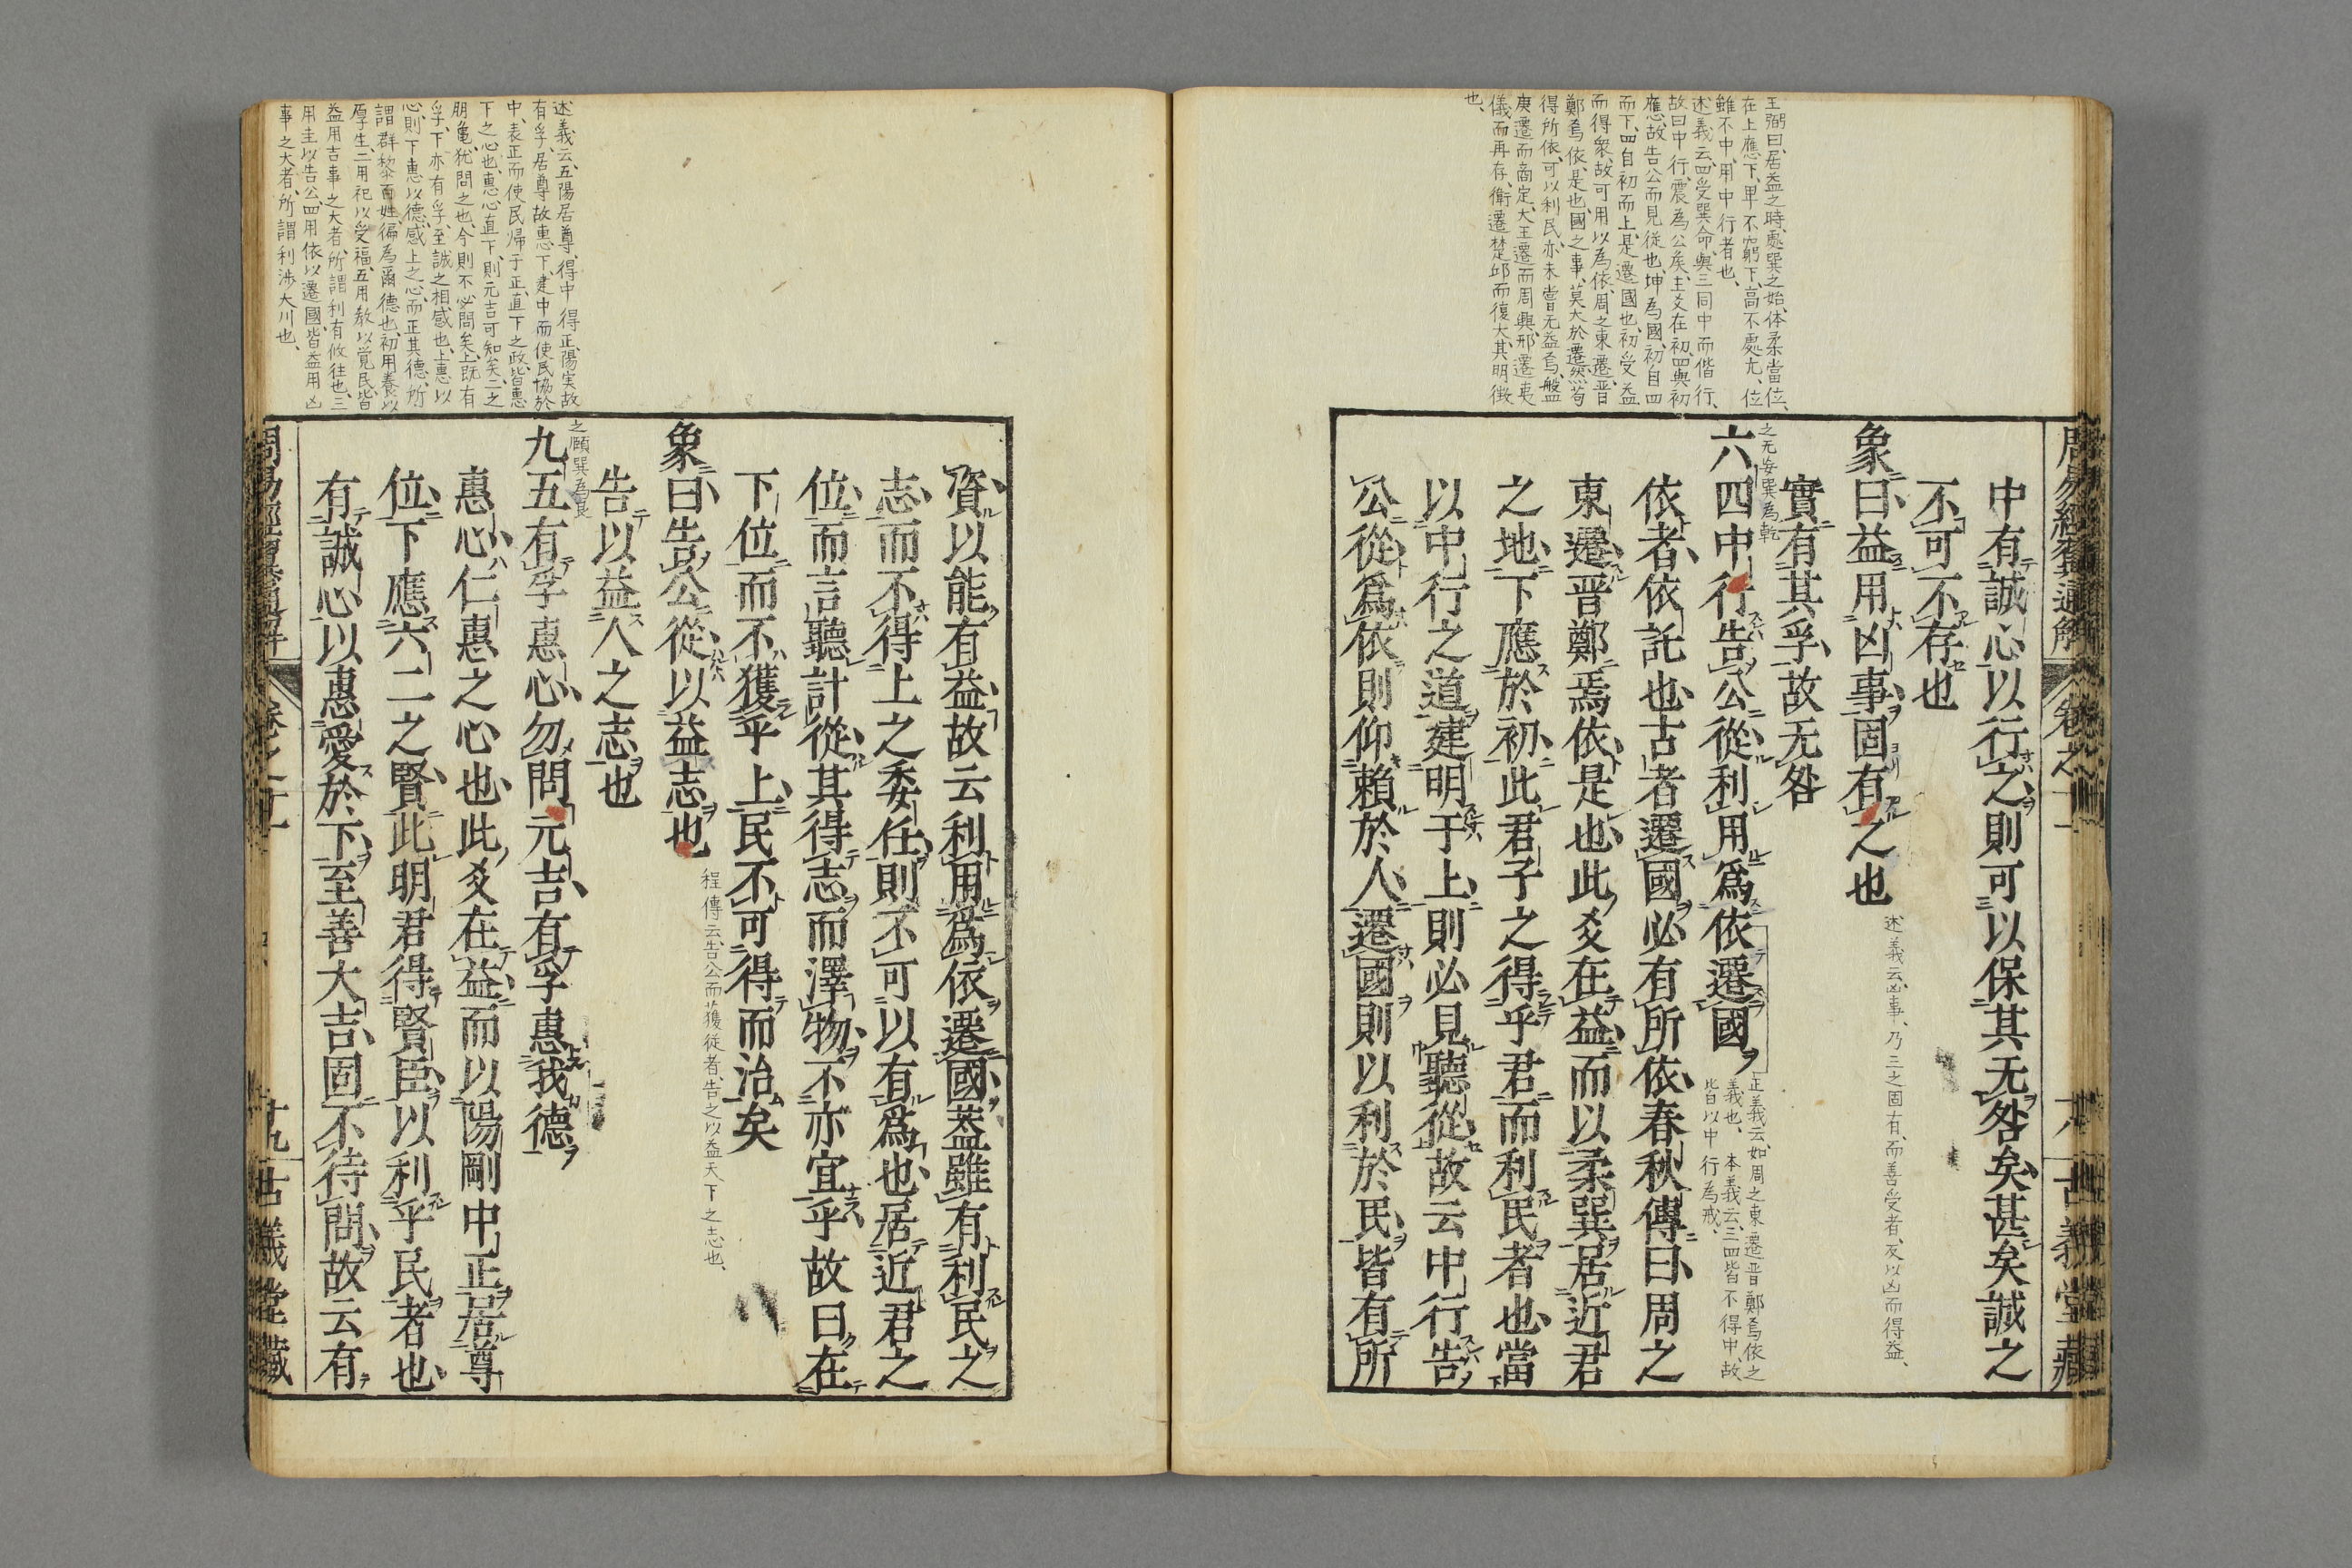 王弼曰、居益之時、處巽之始、体柔當位、
在上應下、卑不窮下、高不處亢、位
雖不中、用中行者也、
述義云、四受巽命、與三同中而偕行、
故曰中行、震為公矣、主爻在初、四與初
應、故告公而見從也、坤為國、初自四
而下、四自初而上、是遷國也、初受益
而得衆、故可用以為依、周之東遷、晋
鄭焉依、是也、國之事、莫大於遷、然苟
得所依、可以利民、亦未嘗无益焉、盤
庚遷而商定、大王遷而周興、邢遷夷
儀而再存、衛遷楚邱而復大、其明徴
也、
周易經翼通解 卷之十一 古義堂藏
中有誠心以行之則可以保其无咎矣甚矣誠之
不可不存也
象曰益用凶事固有之也
述義云、凶事、乃三之固有、而善受者、反以凶而得益、
實有其孚故无咎
之无妄巽為乾
六四中行告公從利用爲依遷國
正義云、如周之東遷晋鄭焉依之
義也、 本義云、三四皆不得中、故
皆以中行為戒、
依者依託也古者遷國必有所依春秋傳曰周之
東遷晋鄭焉依是也此爻在益而以柔巽居近君
之地下應於初此君子之得乎君而利民者也當
以中行之道建明于上則必見聽從故云中行告
公從爲依則仰賴於人遷國則以利於民皆有所
述義云、五陽居尊、得中得正、陽実故
有孚、居尊故惠下、建中而使民協於
中、表正而使民帰于正、直下之政、皆惠
下之心也、惠心直下、則元吉可知矣、二之
朋亀、犹問之也、今則不必問矣、上既有
孚、下亦有孚、至誠之相感也、上惠以
心、則下惠以德、感上之心、而正其德、所
謂群黎百姓、徧為爾德也、初用養以
厚生、二用祀以受福、五用教以覚民、皆
益用吉事之大者、所謂利有攸往也、三
用圭以告公、四用依以遷國、皆益用凶
事之大者、所謂利渉大川也、
資以能有益故云利用爲依遷國蓋雖有利民之
志而不得上之委任則不可以有爲也居近君之
位而言聽計從其得志而澤物不亦宜乎故曰在
下位而不獲乎上民不可得而治矣
象曰告公從以益志也
程傳云、告公而獲從者、告之以益天下之志也、
告以益人之志也
之頤巽為艮
九五有孚惠心勿問元吉有孚惠我德
惠心仁惠之心也此爻在益而以陽剛中正居尊
位下應六二之賢此明君得賢臣以利乎民者也
有誠心以惠愛於下至善大吉固不待問故云有
周易經翼通解 卷之十一 十九 古義堂藏